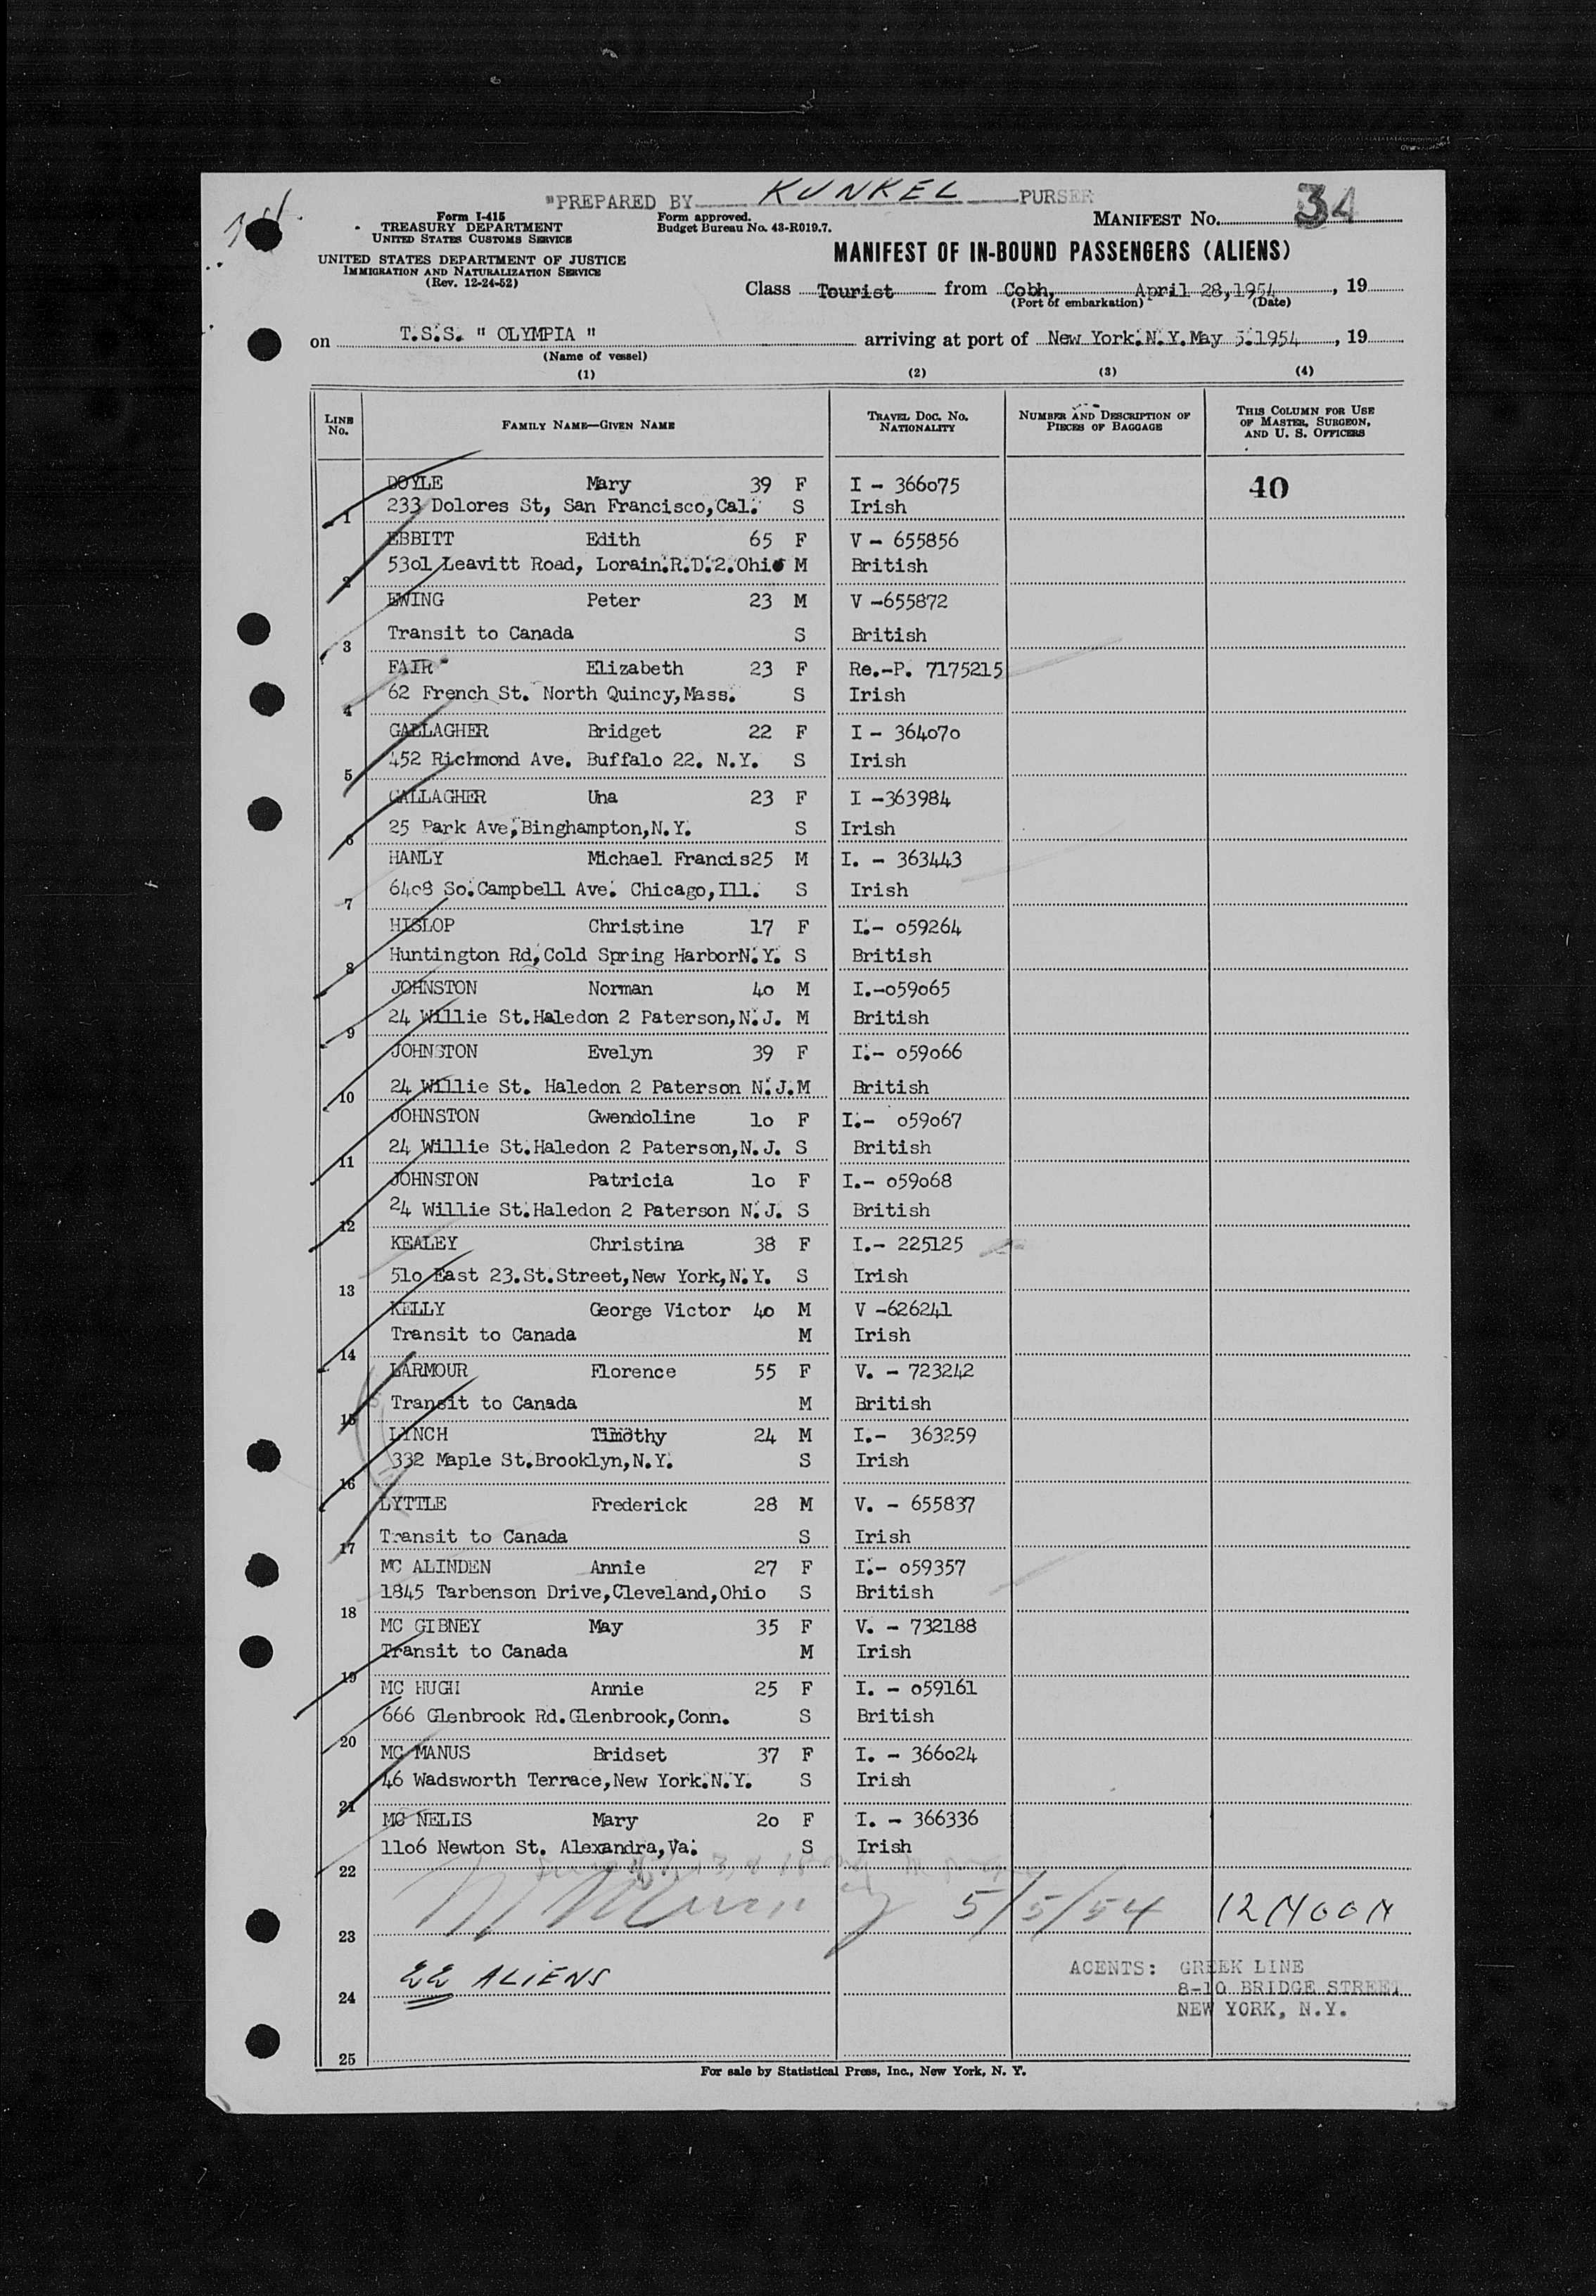 "PREPARED BY KUNKEL PURSER
Form I-415
TREASURY DEPARTMENT
UNITED STATES CUSTOMS SERVICE
Form approved.
Budget Bureau No. 43-R019.7.
MANIFEST No. 34
UNITED STATES DEPARTMENT OF JUSTICE
IMMIGRATION AND NATURALIZATION SERVICE
(Rev. 12-24-52)
MANIFEST OF IN-BOUND PASSENGERS (ALIENS)
Class Tourist from Cobh, April 28,1954, 19
(Port of embarkation) (Date)
on T.S.S. " OLYMPIA " arriving at port of New York.N.Y.May 5.1954, 19
(Name of vessel)
(1) (2) (3) (4)
LINE No. FAMILY NAME—GIVEN NAME TRAVEL DOC. NO. NATIONALITY NUMBER AND DESCRIPTION OF PIECES OF BAGGAGE THIS COLUMN FOR USE OF MASTER, SURGEON, AND U. S. OFFICERS
DOYLE Mary 39 F I - 366o75 40
1 233 Dolores St, San Francisco,Cal. S Irish
EBBITT Edith 65 F V - 655856
2 53o1 Leavitt Road, Lorain.R.D.2.Ohio M British
EWING Peter 23 M V -655872
3 Transit to Canada S British
FAIR Elizabeth 23 F Re.-P. 7175215
4 62 French St. North Quincy,Mass. S Irish
GALLAGHER Bridget 22 F I - 364o7o
5 452 Richmond Ave. Buffalo 22. N.Y. S Irish
GALLAGHER Una 23 F I -363984
6 25 Park Ave,Binghampton,N.Y. S Irish
HANLY Michael Francis25 M I. - 363443
7 64o8 So.Campbell Ave. Chicago,Ill. S Irish
HISLOP Christine 17 F I.- o59264
8 Huntington Rd,Cold Spring HarborN.Y. S British
JOHNSTON Norman 4o M I.-o59o65
9 24 Willie St.Haledon 2 Paterson,N.J. M British
JOHNSTON Evelyn 39 F I.- o59o66
10 24 Willie St. Haledon 2 Paterson N.J.M British
JOHNSTON Gwendoline 1o F I.- o59o67
11 24 Willie St.Haledon 2 Paterson,N.J. S British
JOHNSTON Patricia 1o F I.- o59o68
12 24 Willie St.Haledon 2 Paterson N.J. S British
KEALEY Christina 38 F I.- 225125
13 51o East 23.St.Street,New York,N.Y. S Irish
KELLY George Victor 4o M V -626241
14 Transit to Canada M Irish
LARMOUR Florence 55 F V. - 723242
15 Transit to Canada M British
LYNCH Timothy 24 M I.- 363259
16 332 Maple St.Brooklyn,N.Y. S Irish
LYTTLE Frederick 28 M V. - 655837
17 Transit to Canada S Irish
MC ALINDEN Annie 27 F I.- o59357
18 1845 Tarbenson Drive,Cleveland,Ohio S British
MC GIBNEY May 35 F V. - 732188
19 Transit to Canada M Irish
MC HUGH Annie 25 F I. - o59161
20 666 Glenbrook Rd.Glenbrook,Conn. S British
MC MANUS Bridset 37 F I. - 366o24
21 46 Wadsworth Terrace,New York.N.Y. S Irish
MC NELIS Mary 2o F I. - 366336
22 11o6 Newton St. Alexandra,Va. S Irish
23 5/5/54 12 NOON
24 22 ALIENS
AGENTS: GREEK LINE
8-10 BRIDGE STREET
NEW YORK, N.Y.
25
For sale by Statistical Press, Inc., New York, N. Y.